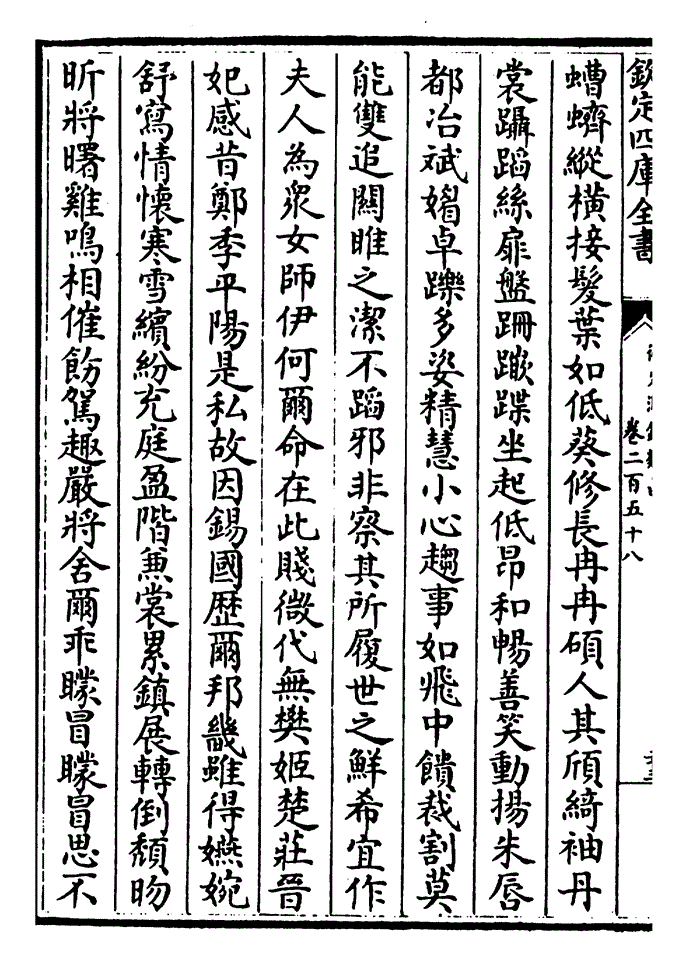 欽定四庫全書
卷二百五十八
蠐縱横接髮葉如低葵修長冉冉碩人其頎綺袖丹
裳躡蹈絲扉盤跚蹴蹀坐起低昂和暢善笑動揚朱唇
都冶斌媚卓躒多姿精慧小心趨事如飛中饋裁割莫
能雙追關雎之潔不蹈邪非察其所履世之鮮希宜作
夫人為衆女師伊何爾命在此賤微代無樊姬楚莊晉
妃感昔鄭季平陽是私故因錫國歴爾邦畿雖得嬿婉
舒寫情懷寒雪繽紛充庭盈階兼裳累鎮展轉倒頽昒
昕將曙雞鳴相催飭駕趣嚴將舍爾乖矇冒矇冒思不